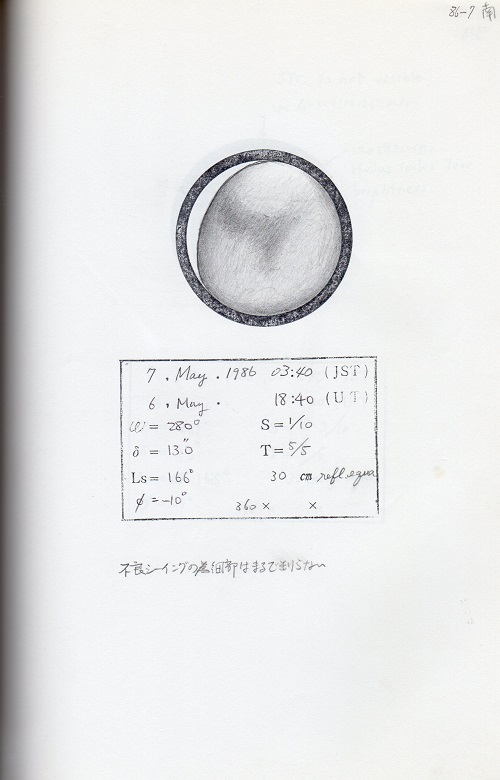 86-7 南
7 . May . 1986 03:40 (JST)
6 . May . 18:40 (UT)
ω = 280° S = 1/10
δ = 13.″0 T = 5/5
Ls = 166° 30 cm refl equa
φ = -10° 360 × ×
不良シーイングの為細部はまるで判らない